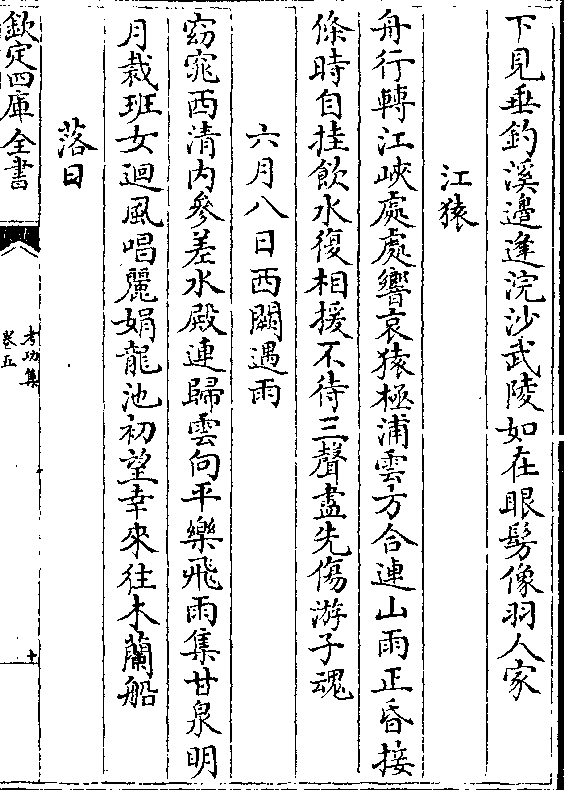 下見垂釣溪邉逢浣沙武陵如在眼髣像羽人家
江猿
舟行轉江峽處處響哀猿極浦雲方合連山雨正昏接
條時自挂飲水復相援不待三聲盡先傷游子魂
六月八日西闕遇雨
窈窕西清内參差水殿連歸雲向平樂飛雨集甘泉明
月裁班女迴風唱麗娟龍池初望幸來往木蘭船
落日
欽定四庫全書
考功集
卷五
十